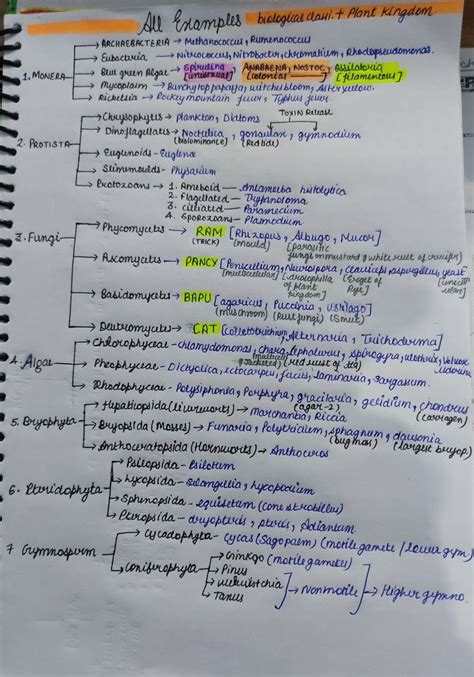 All Examples biological classi. + Plant Kingdom.
1. MONERA
→ ARCHAEBACTERIA → Methanococcus, Rumenococcus
→ Eubacteria → Nitrococcus, Nitrobacter, chromatium, Rhodopseudomonas.
→ Blue green Algae → Spirulina, ANABAENA, NOSTOC, Oscillatoria
[unisexual] [colonial] [filamentous]
→ Mycoplasm →
→ Rickettsia → Rocky mountain fever, Typhus fever
2. PROTISTA
→ Chrysophytes → Plankton, Diatoms
TOXIN Release
→ Dinoflagellates → Noctulica, gonaulax, gymnodium
(Bioluminance) (Redtide)
→ Euglenoids - Euglena
→ Slimemoulds - Physarium
→ Protozoans → 1. Ameboid — Entamoeba histolytica
2. Flagellated — Trypanosoma
3. ciliated — Paramecium
4. Sporozoans — Plasmodium
3. Fungi
→ Phycomycetes → RAM [Rhizopus, Albugo, Mucor]
(TRICK) (mould) (parasitic fungi on mustard & white rust of crucifer)
→ Ascomycetes → PANCY [Penicillium, Neurospora, claviceps, aspergillus, yeast
(multicellular) (drosophilla of plant kingdom) (Erogot of Rye) (unicellulary)
→ Basidiomycetes → BAPU [agaricus, Puccinia, Ustilago]
(mushroom) (Rust fungi) (Smut)
→ Deutromycetes → CAT [Colletotrichium, Alternaria, Trichoderma]
4. Algae
→ Chlorophyceae - chlamydomonas, chara, cephaleuros, spirogyra, ulothrix, Volvox
(red rust of tea)
→ Pheophyceae - Dictyolica, Ectocarpus, fucus, laminaria, Sargasum.
→ Rhodophyceae - Polysiphonia, Porphyra, gracilaria, gelidium, chondrus
(agar-2) (carrogen)
5. Bryophyta
→ Hepaticopsida (liverworts) → marchantia, Riccia
→ Bryopsida (Mosses) → Funaria, Polytricium, sphagnum, dausonia
(bog mos) (largest bryop.)
→ Anthocerotopsida (Hornworts) → Anthoceros
6. Pteridophyta
→ Psilopsida - Psilotum
→ Lycopsida - selangella, lycopodium
→ Sphenopsida - equisetum (cone strobilus)
→ Pteropsida - dryopteris, pteris, Adiantum
7 Gymnosperm
→ Cycadophyta - cycas (Sago palm) (motile gamete / lower gym.)
→ Coniferophyta → Ginkgo (motile gametes)
→ Pinus
→ welwitschia
→ Taxus
→ Nonmotile → Higher gymno.